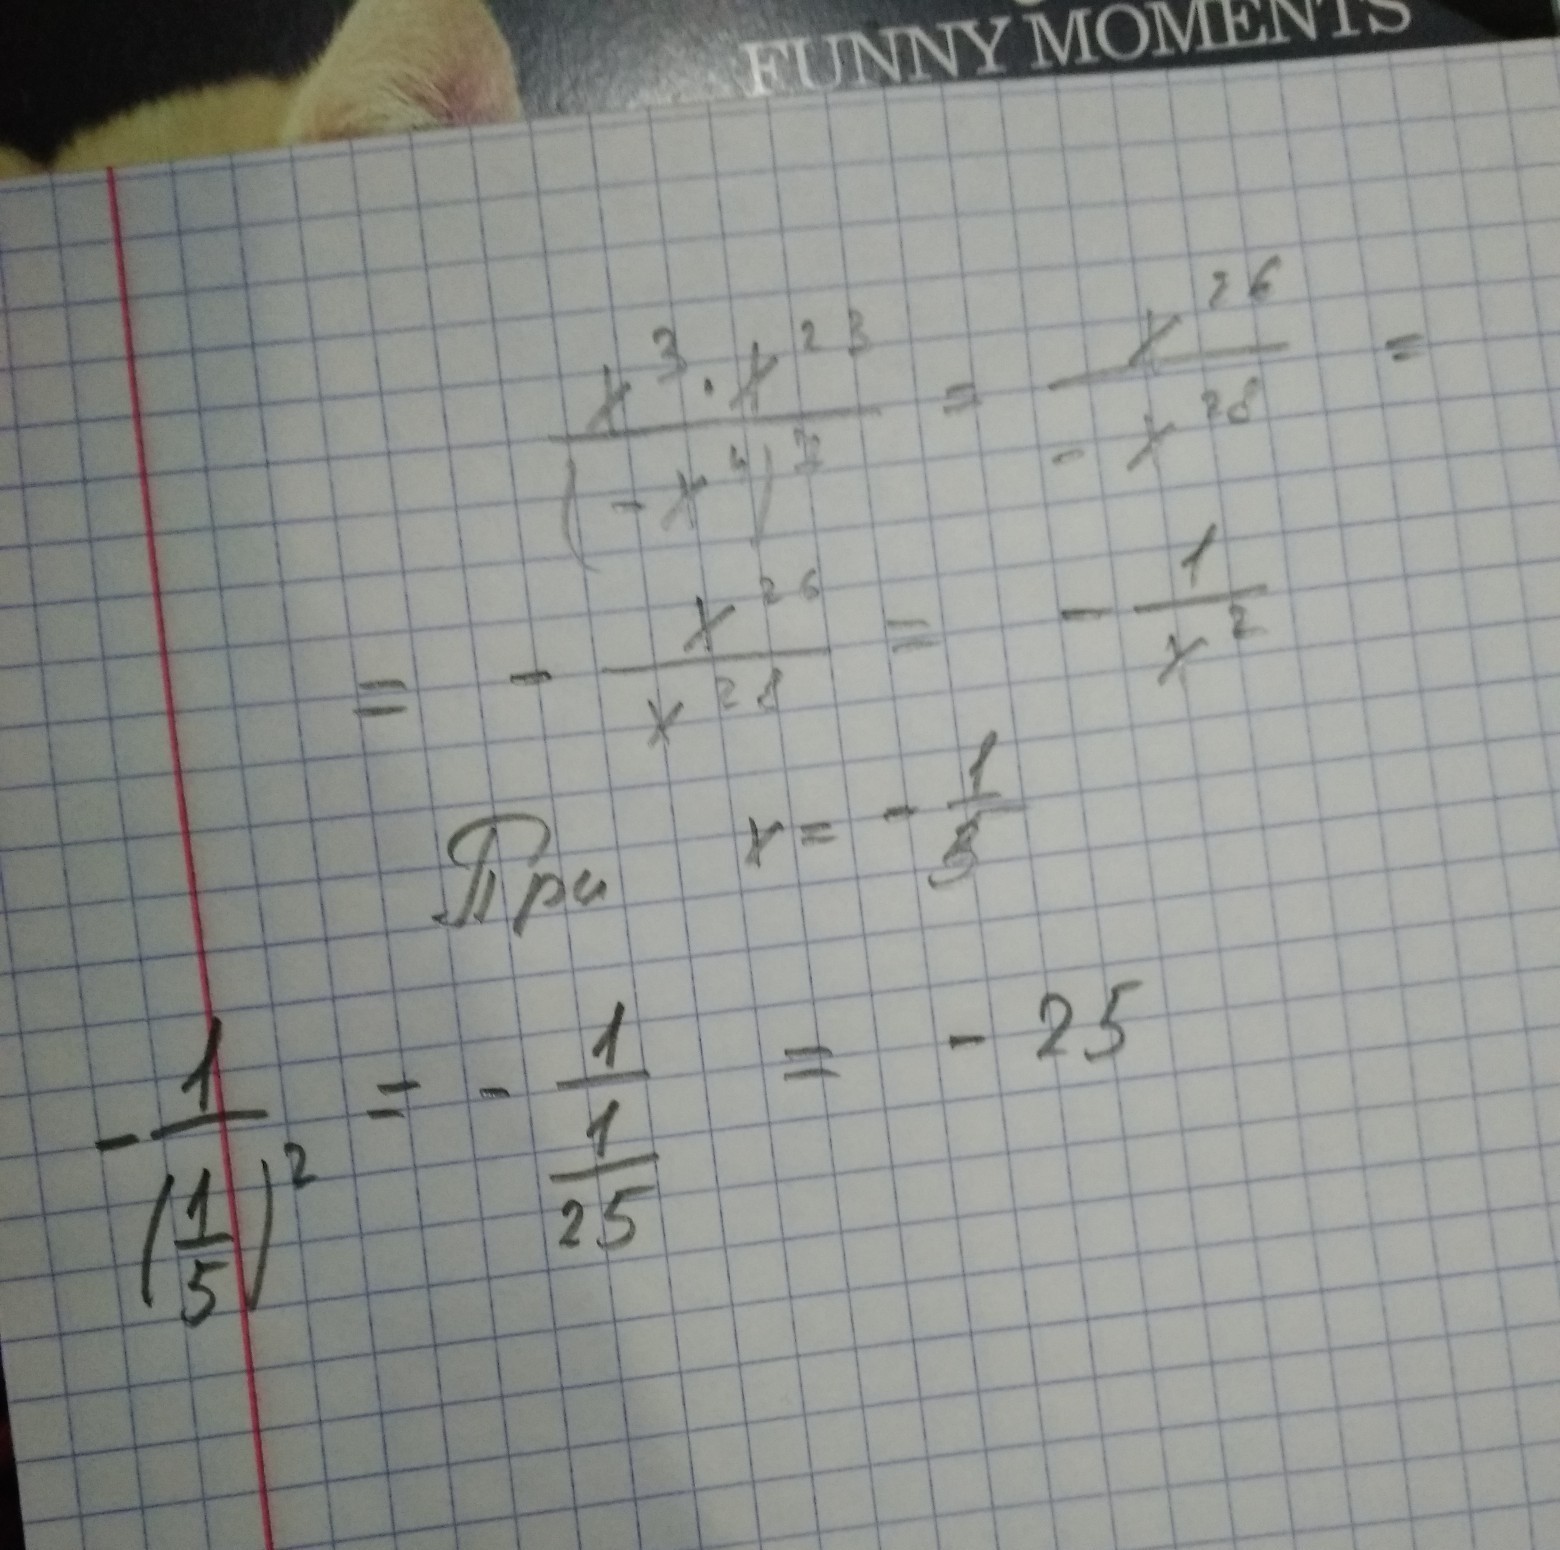 FUNNY MOMENTS
x³ · x²³ / (-x⁴)⁷ = x²⁶ / -x²⁸ =
= - x²⁶ / x²⁸ = - 1 / x²
При x = - 1/5
- 1 / (1/5)² = - 1 / (1/25) = - 25